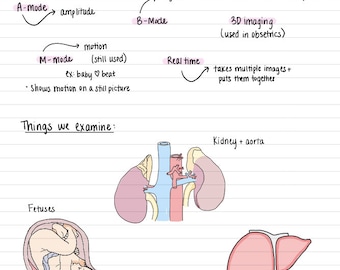 A-mode
amplitude
B-Mode
3D imaging
(used in obsetrics)
M-mode
motion
(still used)
ex: baby ♡ beat
· Shows motion on a still picture
Real time
takes multiple images +
puts them together
Things we examine:
Kidney + aorta
Fetuses